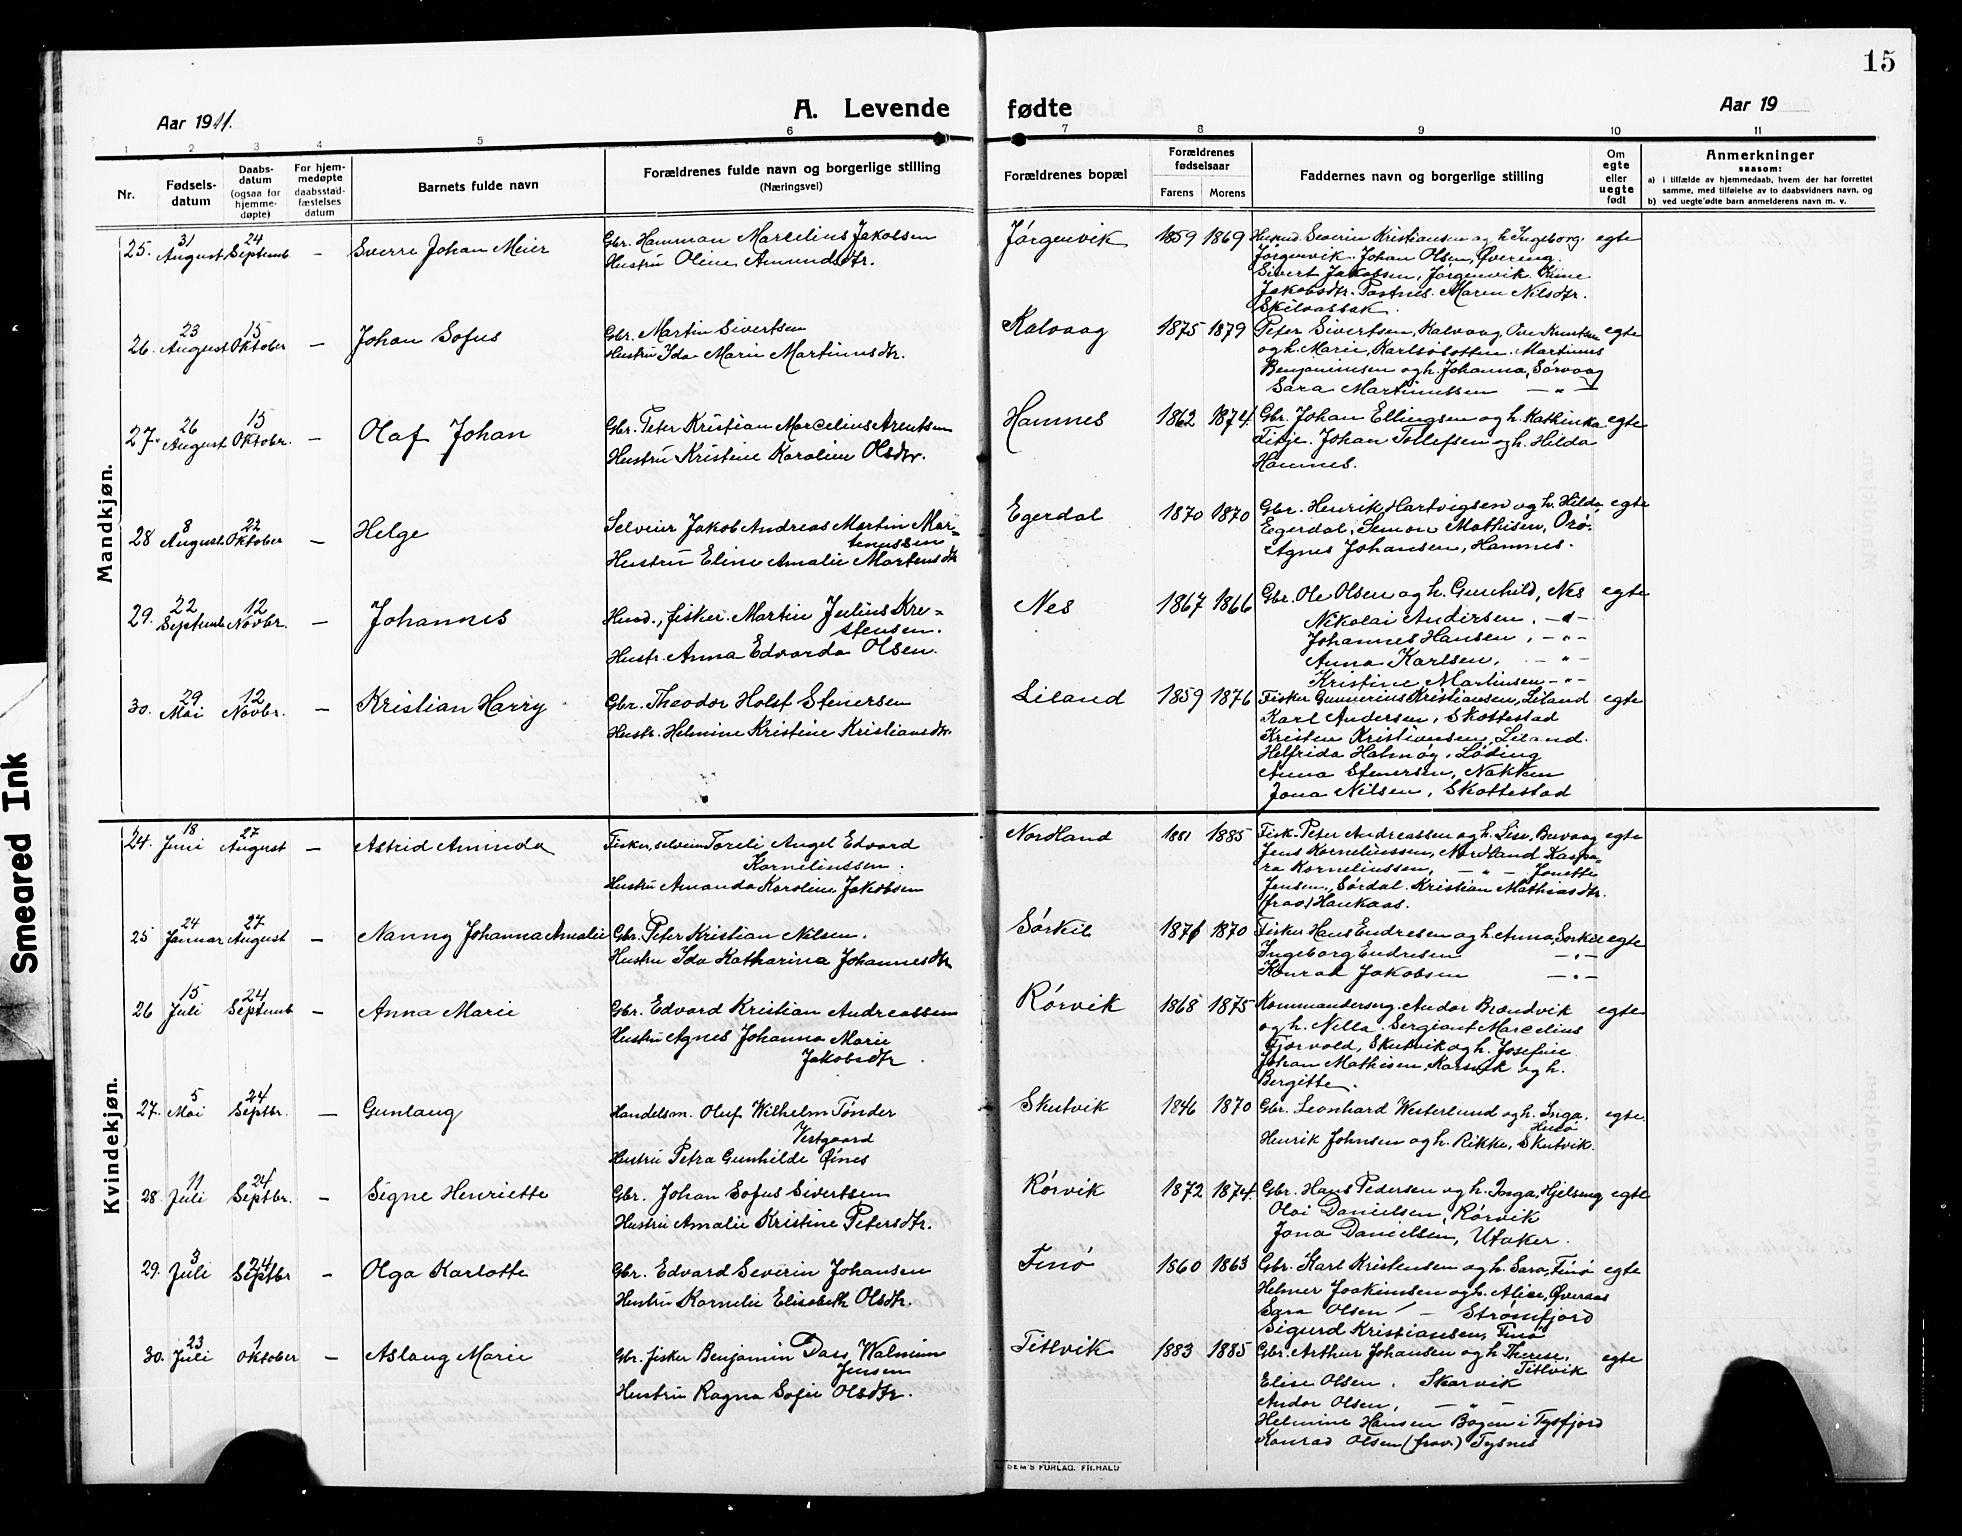 15
Aar 1911.
A. Levende fødte
Aar 19
1 2 3 4 5 6 7 8 9 10 11
Nr.
Fødsels-
datum
Daabs-
datum
(ogsaa for
hjemme-
døpte)
For hjem-
medøpte
daabsstad-
fæstelses
datum
Barnets fulde navn
Forældrenes fulde navn og borgerlige stilling
(Næringsvei)
Forældrenes bopæl
Forældrenes
fødselsaar
Farens Morens
Faddernes navn og borgerlige stilling
Om
egte
eller
uegte
født
Anmerkninger
saasom:
a) i tilfælde av hjemmedaab, hvem der har forrettet
samme, med tilføielse av to daabsvidners navn, og
b) ved uegte fødte barn anmelderens navn m. v.
Mandkjøn.
25. 31 August 24 Septemb – Sverre Johan Meier
Gbr. Hamman Marcelius Jakobsen
Hustru Oline Amundsdtr.
Jørgenvik 1859 1869
Husmd. Severin Kristiansen og h. Ingeborg. egte
Jørgenvik. Johan Olsen, Øvereng.
Sivert Jakobsen, Jørgenvik.
Jakobsdtr. Maren Nilsdtr.
26. 23 August 15 Oktober – Johan Sofus
Gbr. Martin Sivertsen
Hustru Ida Marie Martinusdtr.
Kalvaag 1875 1879
Peter Sivertsen, Kalvaag, Ove Knutsen egte
og h. Marie, Martinus
Benjaminsen og h. Johanna, Sørvaag
Sara Martinussen – " –
27. 26 August 15 Oktobr. – Olaf Johan
Gbr. Peter Kristian Marcelius Arentsen
Hustru Kristine Karoline Olsdtr.
Hamnes 1862 1874.
Gbr. Johan Ellingsen og h. Kathinka egte
Johan Tollefsen og h. Hilda
Hamnes.
28 8 August. 22 Oktober – Helge
Selveier Jakob Andreas Martin Mar-
tinussen
Hustru Eline Amalie Martensdtr
Egerdal 1870 1870
Gbr. Henrik Hartvigsen og h. Hilda egte
Egerdal, Simon Mathisen,
Agnes Johansen, Hamnes.
29. 22 Septemb 12 Novbr. – Johannes
Husmd., fisker. Martin Julius Kri-
stensen.
Hustr. Anna Edvarda Olsen.
Nes 1867 1866
Gbr. Ole Olsen og h. Gunhild, Nes egte
Nikolai Andersen, – " –
Johannes Hansen, – " –
Anna Karlsen, – " –
Kristine Martinsen – " –
30. 29 Mai 12 Novbr. – Kristian Harry
Gbr. Theodor Holst Stenersen
Hustr. Helmine Kristine Kristiansdtr.
Liland 1859 1876
Fisker Gunnerius Kristiansen, Liland egte
Karl Andersen, Skottestad
Kristen Kristiansen, Liland.
Helfrida Halmøy, Løding
Anna Stenersen, Nakken
Jona Nilsen, Skottestad
Kvindekjøn.
24. 18 Juni 27 August – Astrid Aminda
Fisker, selveier Toreli Angel Edvard
Korneliussen.
Hustru Amanda Karoline Jakobsen
Nordland 1881 1885
Fisk. Peter Andreassen og h. Lise, egte
Jens Korneliussen, Nordland Kaspa-
ra Korneliussen, – " – Jonette
Jensen, Sørdal. Kristian Mathiasdtr.
(frav) Haukaas.
25 24 Januar 27 August – Nanny Johanna Amalie
Gbr. Peter Kristian Nilsen.
Hustru Ida Katharina Johannesdtr
Sørkil 1871 1870
Fisker Hans Endresen og h. Anna, Sørkil egte
Ingeborg Endresen – " –
Konrad Jakobsen – " –
26 15 Juli 24 Septemb – Anna Marie
Gbr. Edvard Kristian Andreassen
Hustru Agnes Johanna Marie
Jakobsdtr.
Rørvik 1868 1875
Kommandersrg. Andor Brændvik egte
og h. Nella. Sergiant Marcelius
Fjorvold, Skutvik og h. Josefine
Johan Mathisen, Korsvik og h.
Bergitte.
27. 5 Mai 24 Septbr. – Gunlaug
Handelsm. Oluf Wilhelm Tønder
Vestgaard
Hustru Petra Gunhilde Øines
Skutvik 1846 1870
Gbr. Leonhard Westerlund og h. Inga, egte.
Henrik Johnsen og h. Rikke, Skutvik.
28. 11 Juli 24 Septbr. – Signe Henriette
Gbr. Johan Sofus Sivertsen
Hustru Amalie Kristine Petersdtr.
Rørvik 1872 1874.
Gbr. Hans Pedersen og h. Inga, Hjelsing egte
Olai Danielsen, Rørvik
Jona Danielsen, Utaker.
29. 3 Juli 24 Septbr – Olga Karlotte
Gbr. Edvard Severin Johansen
Hustru Kornelie Elisabeth Olsdtr.
Finø 1860 1863
Gbr. Karl Kristensen og h. Sara, Finø egte
Helmer Joakimsen og h. Alice, Øveraas
Sara Olsen – Strømfjord
Sigurd Kristiansen, Finø
30. 23 Juli 1 Oktober – Aslaug Marie
Gbr. fisker Benjamin Dass Walnum
Jensen
Hustru Ragna Sofie Olsdtr.
Titlvik 1883 1885
Gbr. Arthur Johansen og h. Therese, egte
Titlvik
Elise Olsen, Skarvik
Andor Olsen, – " –
Helmine Hansen Bogen i Tysfjord
Konrad Olsen (frav.) Tysnes
SEM'S FORLAG. FR.HALD
Smeared Ink